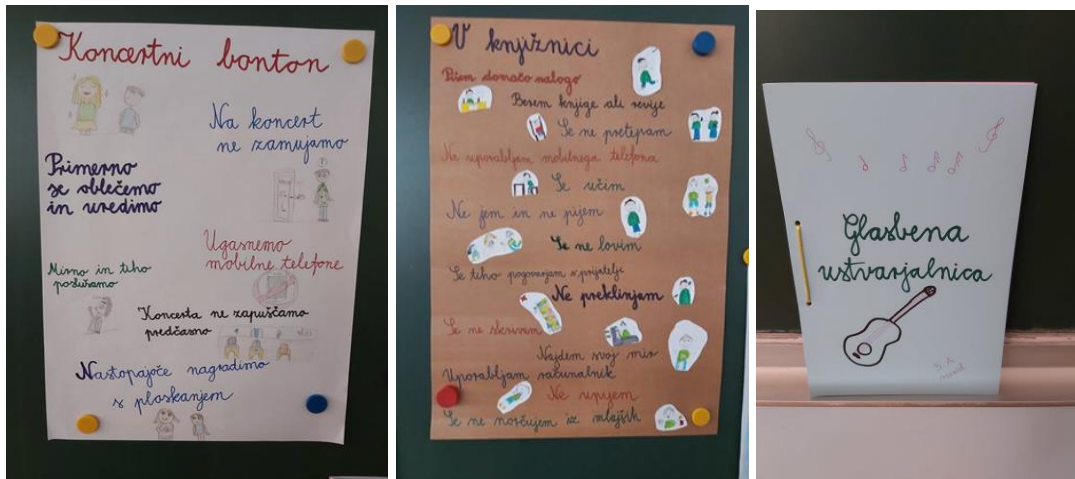 Koncertni bonton
Na koncert
ne zamujamo
Primerno
se oblečemo
in uredimo
Ugasnemo
mobilne telefone
Mirno in tiho
poslušamo
Koncerta ne zapuščamo
predčasno
Nastopajoče nagradimo
s ploskanjem
V knjižnici
Pišem domačo nalogo
Berem knjige ali revije
Se ne pretepam
Ne uporabljam mobilnega telefona
Se učim
Ne jem in ne pijem
Se ne lovim
Se tiho pogovarjam s prijatelji
Ne preklinjam
Se ne skrivam
Najdem svoj mir
Uporabljam računalnik
Ne vpijem
Se ne norčujem iz mlajših
Glasbena
ustvarjalnica